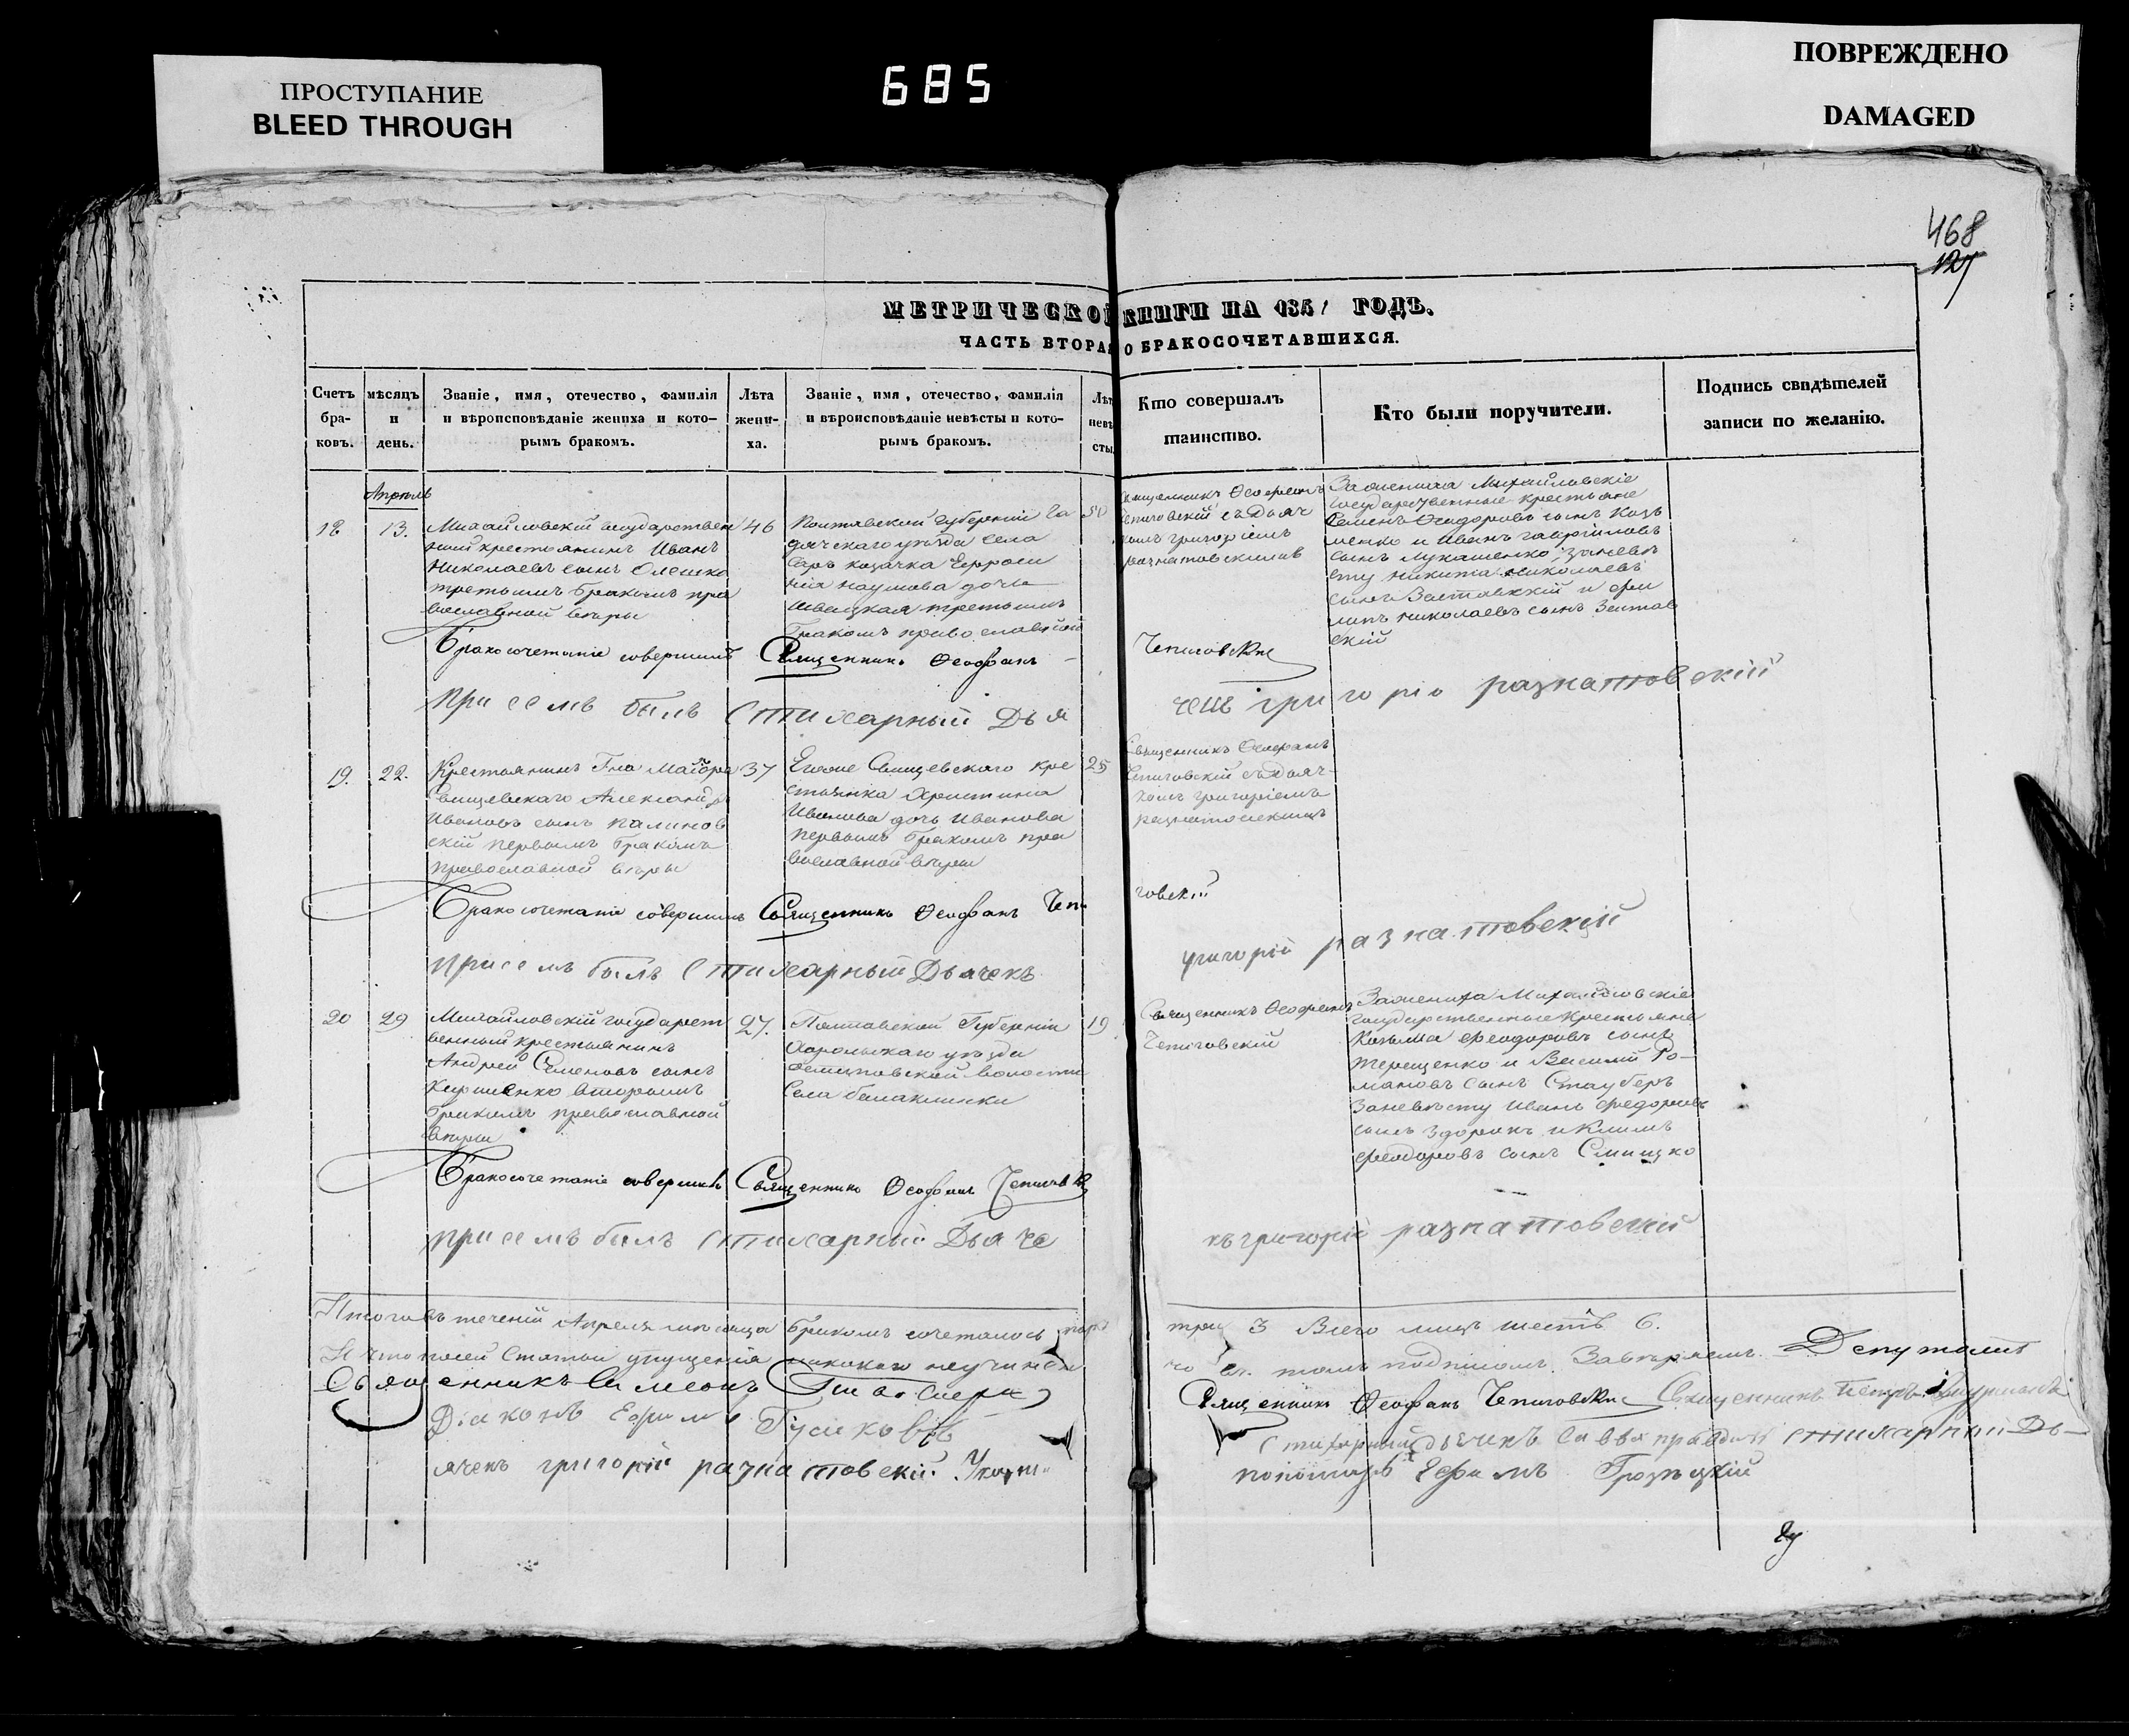 ПРОСТУПАНИЕ
BLEED THROUGH
685
ПОВРЕЖДЕНО
DAMAGED
468
МЕТРИЧЕСКОЙ КНИГИ НА 1851 ГОДЪ.
ЧАСТЬ ВТОРАЯ О БРАКОСОЧЕТАВШИХСЯ.
Счетъ бра-ковъ.
мѣсяцъ и день.
Званіе, имя, отечество, фамилія
и вѣроисповѣданіе жениха и кото-
рымъ бракомъ.
Лѣта жени-ха.
Званіе, имя, отечество, фамилія
и вѣроисповѣданіе невѣсты и кото-
рымъ бракомъ.
Лѣт невѣ сты
Кто совершалъ
таинство.
Кто были поручители.
Подпись свидѣтелей
записи по желанію.
Апрѣль
18
13.
Михайловскій государствен
ный крестьянинъ Иванъ
Николаевъ сынъ Олешко
третьимъ бракомъ пра
вославной вѣры
46
Полтавской Губерніи Га
дячскаго уѣзда села
козачка Евфроси
нія Наумова дочь
Швецкая третьимъ
бракомъ православной
50
Священникъ Ѳеофанъ
Чепиговскій съ дьяч
комъ Григоріемъ
Разнатовскимъ
За жениха Михайловскіе
государственные крестьяне
Семенъ Ѳеодоровъ сынъ Козь
менко и Иванъ Гавріиловъ
сынъ Лукашенко; за невѣ
сту Никита Николаевъ
сынъ Заставскій и Фи
липъ Николаевъ сынъ Застав
скій
Бракосочетаніе совершилъ Священникъ Ѳеофанъ Чепиговскій
При семъ былъ Стихарный Дья чекъ Григорій Разнатовскій
19.
22.
Крестьянинъ Гна Маіора
Свищевскаго Александръ
Ивановъ сынъ Калинов
скій первымъ бракомъ
православной вѣры
37
Егоже Свищевскаго кре
стьянка Христина
Иванова дочь Иванова
первымъ бракомъ пра
вославной вѣры
25
Священникъ Ѳеофанъ
Чепиговскій съ дьяч-
комъ Григоріемъ
Разнатовскимъ
Бракосочетаніе совершилъ Священникъ Ѳеофанъ Чепи говскій
При семъ былъ Стихарный Дьячекъ Григорій Разнатовскій
20
29
Михайловскій государст
венный крестьянинъ
Андрей Семеновъ сынъ
вторымъ
бракомъ православной
вѣры
27.
Полтавской Губерніи
Хорольскаго уѣзда
волости
Села
19
Священникъ Ѳеофанъ
Чепиговскій
За жениха Михайловскіе
государственные крестьяне
Козьма Ѳеодоровъ сынъ
Терещенко и Василій Ро-
мановъ сынъ
За невѣсту Иванъ Федоровъ
сынъ и Климъ
Ѳеодоровъ сынъ
Бракосочетаніе совершилъ Священникъ Ѳеофанъ Чепиговскій
При семъ былъ Стихарный Дьяче къ Григорій Разнатовскій
Итого въ теченіи Апреля мѣсяца бракомъ сочеталось паръ три 3 Всего лицъ шесть 6.
И что по сей Статьи упущенія никакого неучинено въ томъ подписомъ Завѣряемъ. Депутатъ
Священникъ Симеонъ
Священникъ Ѳеофанъ Чепиговскій Священникъ Петръ
Діаконъ Ефимъ
Стихарный дьячекъ Савва Стихарный Дь-
ячекъ Григорій Разнатовскій.
пономарь Ефимъ